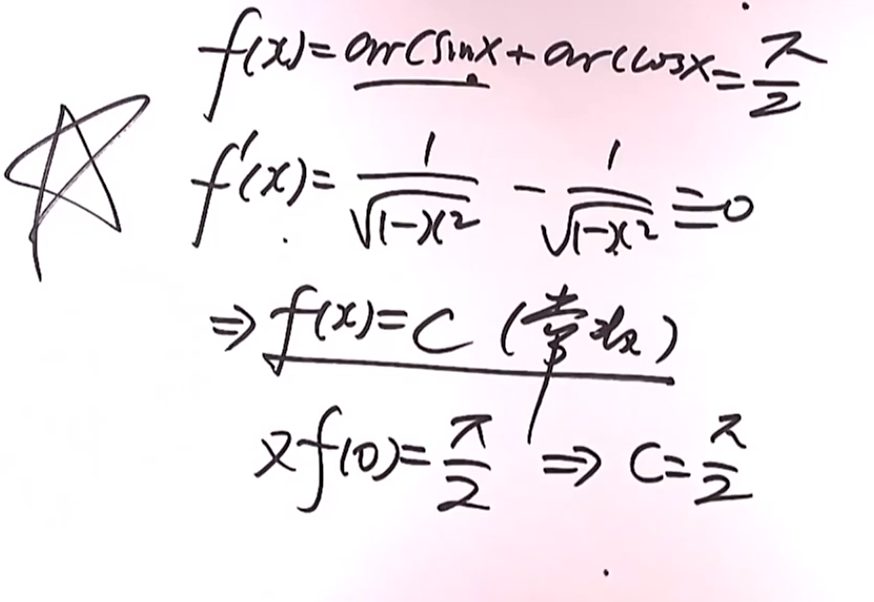 f(x)=arcsinx+arccosx=π/2
f'(x)=1/√(1-x²) - 1/√(1-x²) ≡0
⇒ f(x)=C (常数)
又f(0)=π/2 ⇒ C=π/2